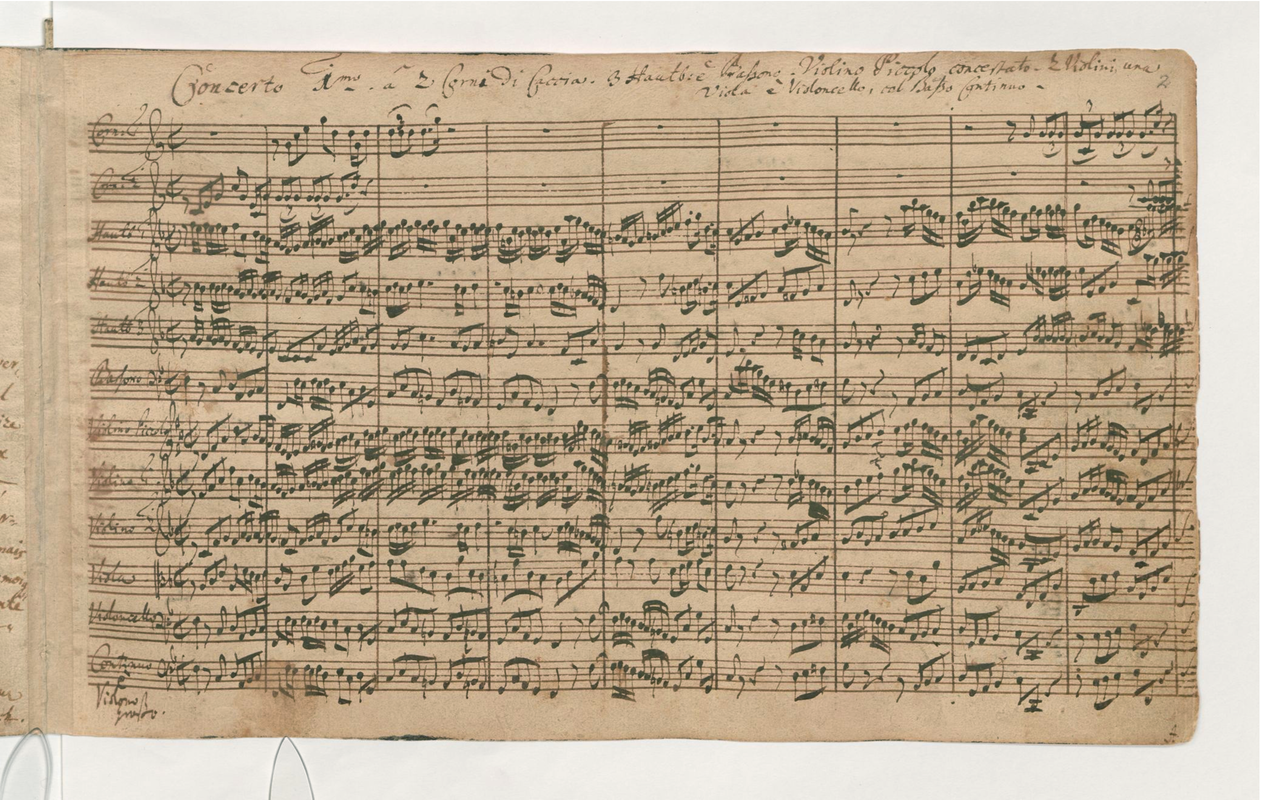 Concerto 1mo. à 2 Corni di Caccia. 3 Hautb: è Bassono. Violino Piccolo concertato. 2 Violini, una
Viola è Violoncello, col Basso Continuo.
2
Corno 1
Corno 2
Hautb 1
Hautb 2
Hautb 3
Bassono
Violino Piccolo
Violino 1
Violino 2
Viola
Violoncello
Continuo è
Violono
grosso.